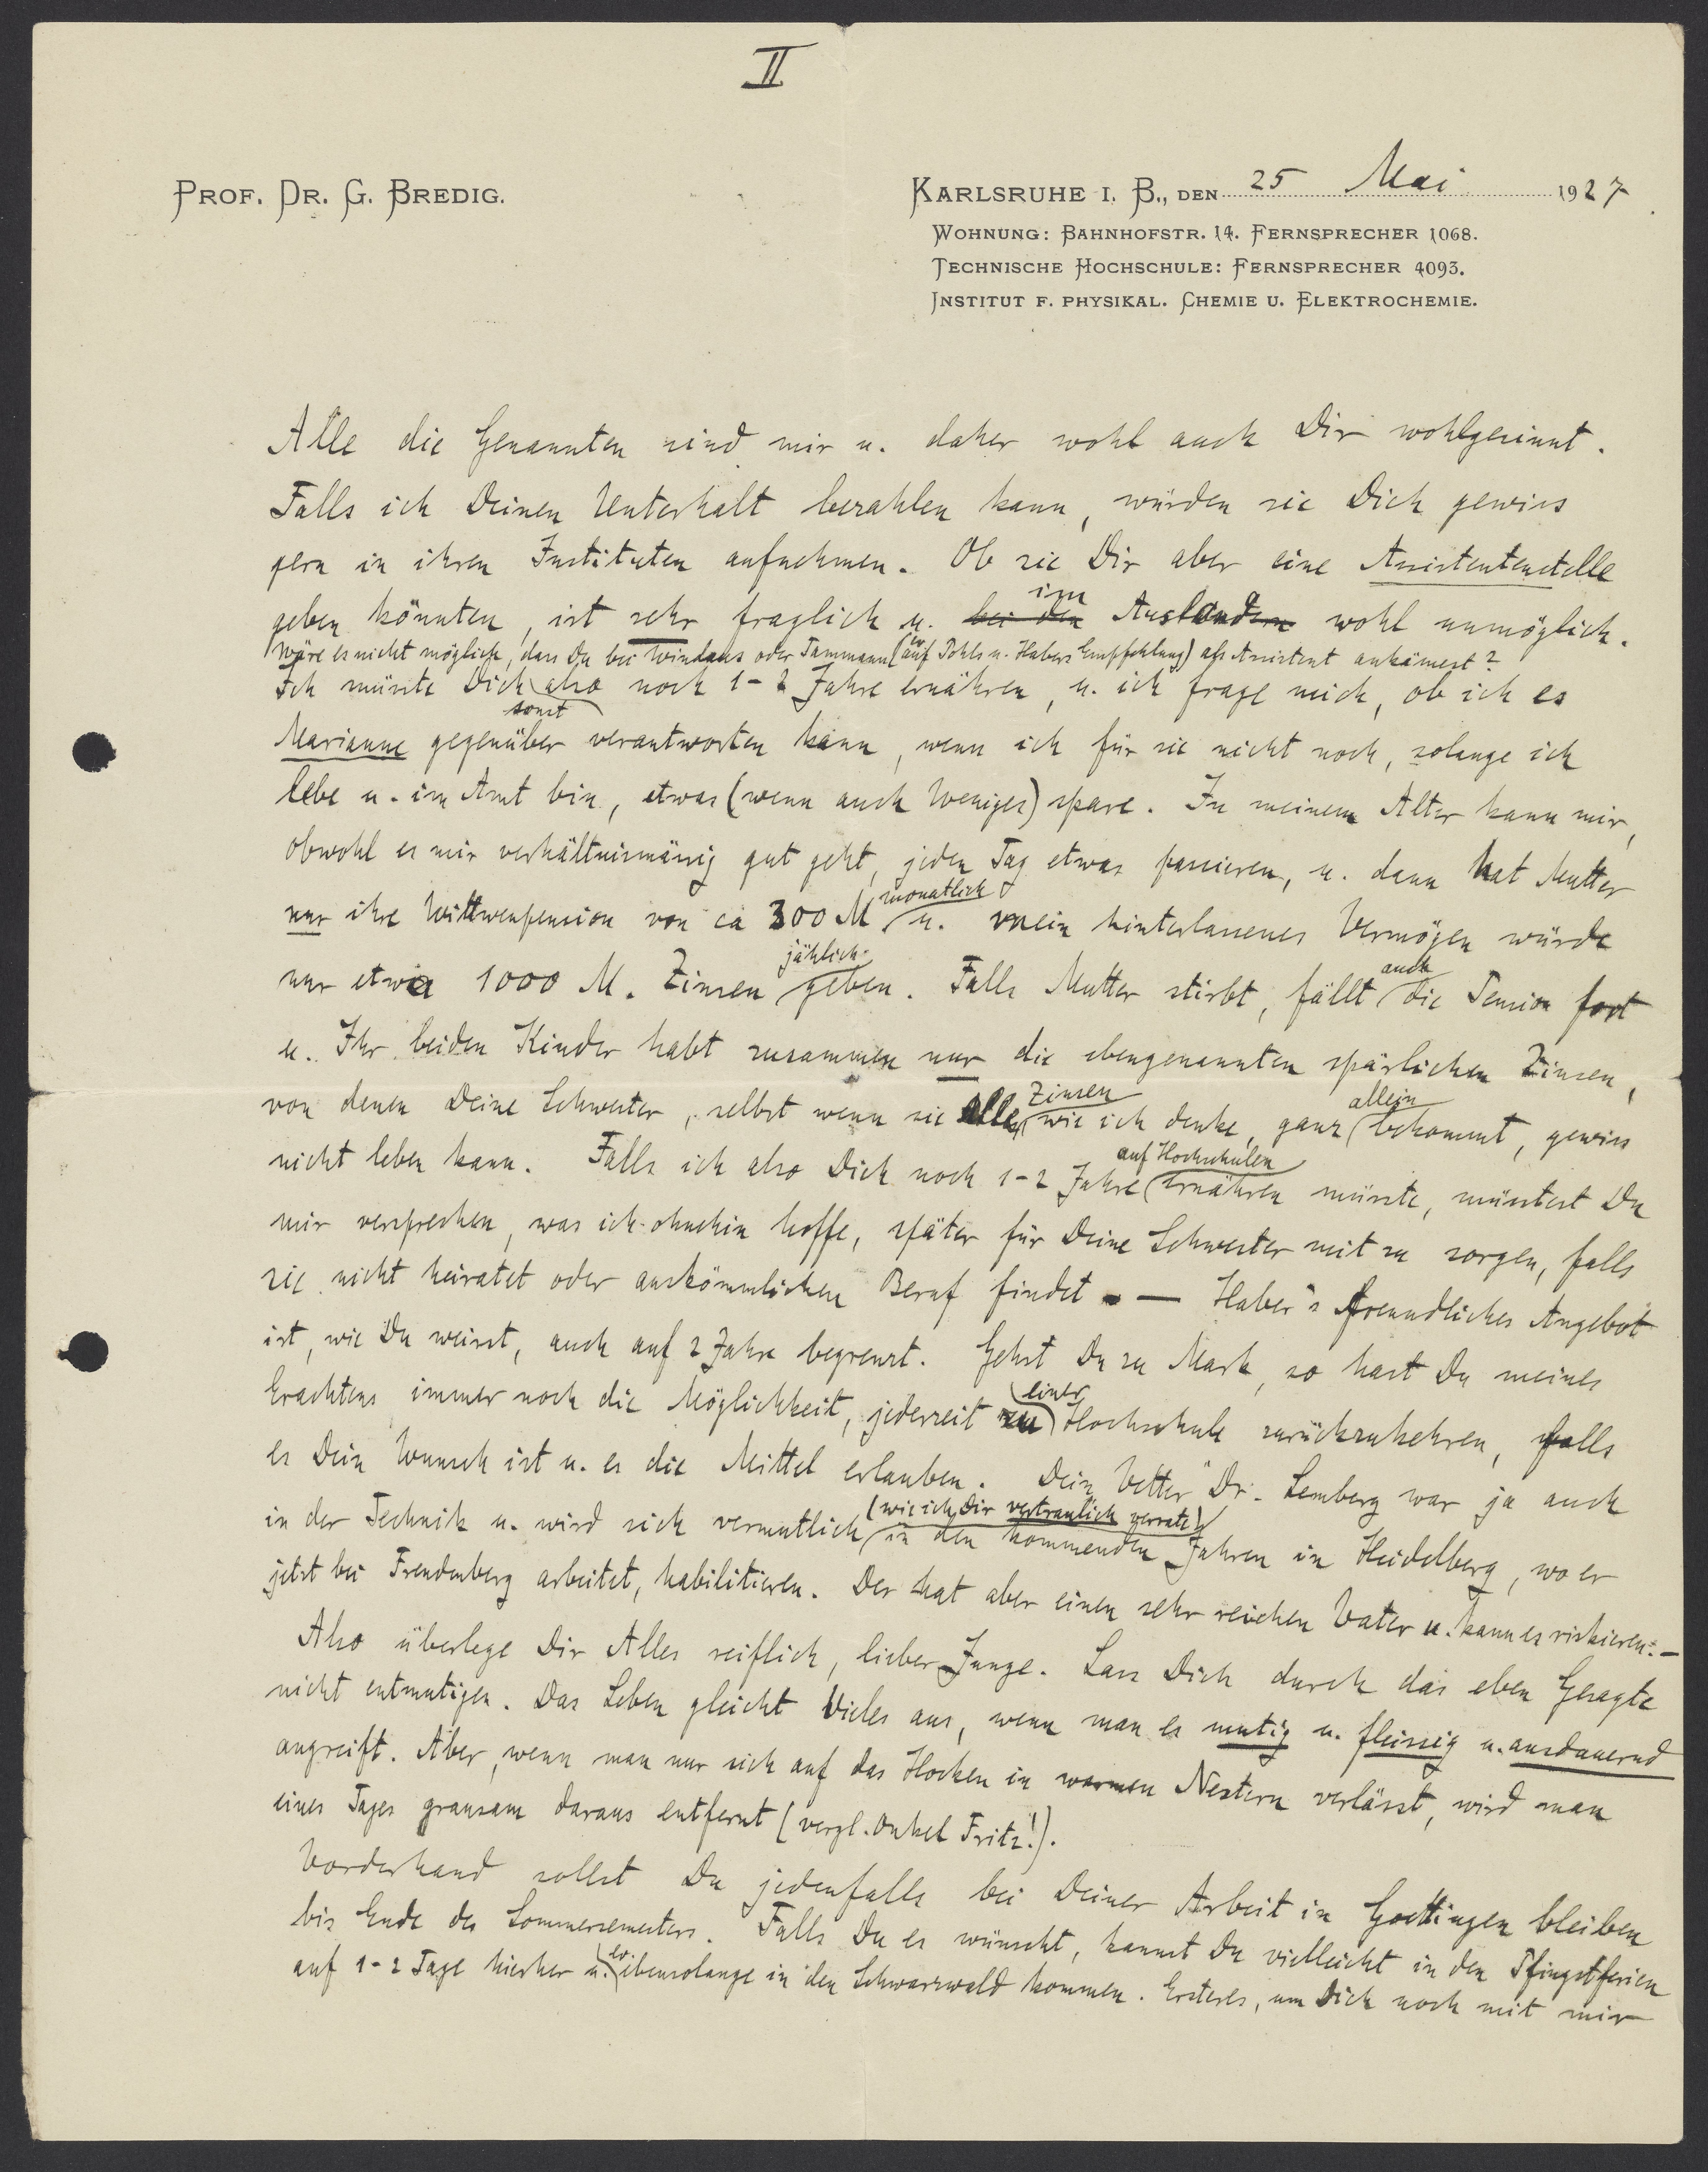 II
PROF. DR. G. BREDIG.
KARLSRUHE I. B., DEN 25 Mai 1927.
WOHNUNG: BAHNHOFSTR. 14. FERNSPRECHER 1068.
TECHNISCHE HOCHSCHULE: FERNSPRECHER 4093.
INSTITUT F. PHYSIKAL. CHEMIE U. ELEKTROCHEMIE.
Alle die Genannten sind mir u. daher wohl auch Dir wohlgesinnt.
Falls ich Deinen Unterhalt bezahlen kann, würden sie Dich gewiss
gern in ihren Instituten aufnehmen. Ob sie Dir aber eine Assistentenstelle
im
geben könnten, ist sehr fraglich u. bei den Ausländern wohl unmöglich.
Wäre es nicht möglich, dass Du bei Windaus oder Tammann (ev. auf Pohls u. Habers Empfehlung) als Assistent ankämest?
Ich müsste Dich also noch 1-2 Jahre ernähren, u. ich frage mich, ob ich es
sonst
Marianne gegenüber verantworten kann, wenn ich für sie nicht noch, solange ich
lebe u. im Amt bin, etwas (wenn auch Weniges) spare. In meinem Alter kann mir,
obwohl es mir verhältnismässig gut geht, jeden Tag etwas passieren, u. dann hat Mutter
monatlich
nur ihre Wittwenpension von ca 300 M u. mein hinterlassenes Vermögen würde
jährlich auch
nur etwa 1000 M. Zinsen geben. Falls Mutter stirbt, fällt die Pension fort
u. Ihr beiden Kinder habt zusammen nur die ebengenannten spärlichen Zinsen,
Zinsen allein
von denen Deine Schwester, selbst wenn sie alle, wie ich denke, ganz bekommt, gewiss
auf Hochschulen
nicht leben kann. Falls ich also Dich noch 1-2 Jahre ernähren müsste, müsstest Du
mir versprechen, was ich ohnehin hoffe, später für Deine Schwester mit zu sorgen, falls
sie nicht heiratet oder auskömmlichen Beruf findet. — Haber's freundliches Angebot
ist, wie Du weisst, auch auf 2 Jahre begrenzt. Gehst Du zu Mark, so hast Du meines
einer
Erachtens immer noch die Möglichkeit, jederzeit zu Hochschule zurückzukehren, falls
es Dein Wunsch ist u. es die Mittel erlauben. Dein "Vetter" Dr. Lemberg war ja auch
(wie ich Dir vertraulich verrate)
in der Technik u. wird sich vermutlich in den kommenden Jahren in Heidelberg, wo er
jetzt bei Freudenberg arbeitet, habilitieren. Der hat aber einen sehr reichen Vater u. kann es riskieren. —
Also überlege Dir Alles reiflich, lieber Junge. Lass Dich durch das eben Gesagte
nicht entmutigen. Das Leben gleicht Vieles aus, wenn man es mutig u. fleissig u. ausdauernd
angreift. Aber, wenn man nur sich auf das Hocken in warmen Nestern verlässt, wird man
eines Tages grausam daraus entfernt (vergl. Onkel Fritz!).
Vorderhand sollst Du jedenfalls bei Deiner Arbeit in Goettingen bleiben
bis Ende des Sommersemesters. Falls Du es wünscht, kannst Du vielleicht in den Pfingstferien
ev.
auf 1-2 Tage hierher u. ebensolange in den Schwarzwald kommen. Ersteres, um Dich noch mit mir